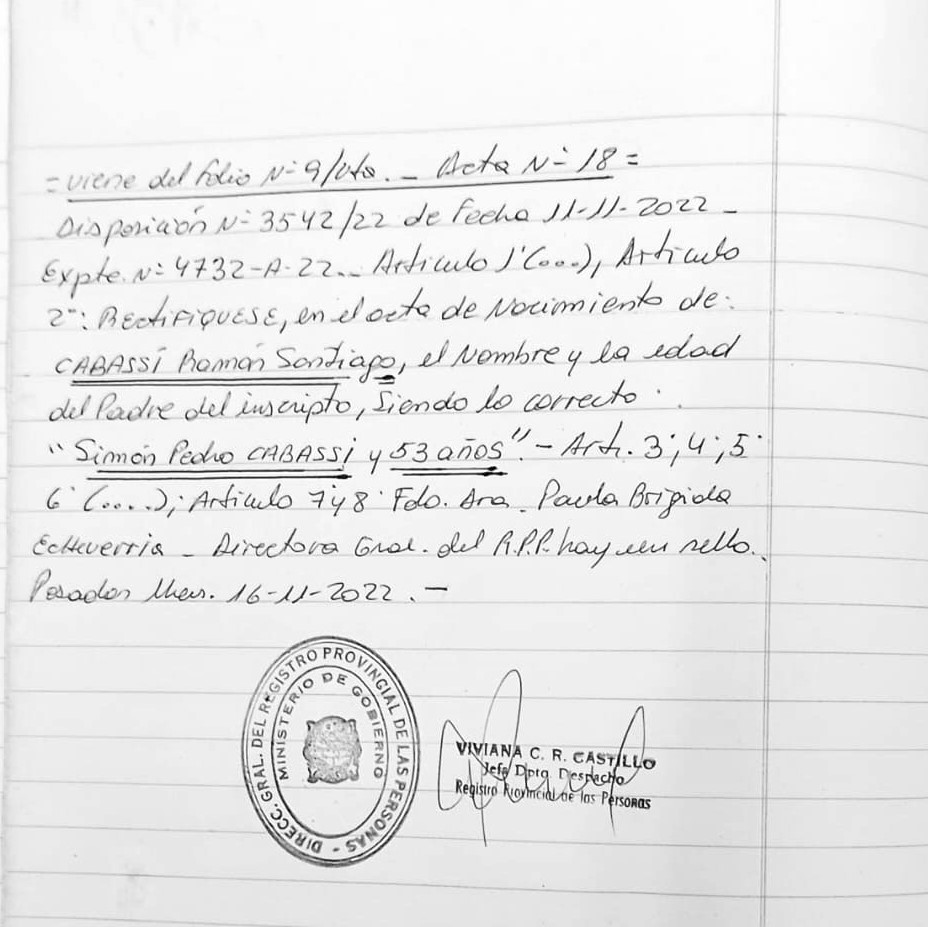 = viene del folio Nº 9/vto. - Acta Nº 18 =
Disposición Nº 3542/22 de Fecha 11-11-2022 -
Expte. Nº 4732-A-22.- Articulo 1º(...), Articulo
2º: RECTIFIQUESE, en el acta de Nacimiento de:
CABASSI Ramón Santiago, el Nombre y la edad
del Padre del inscripto, Siendo lo correcto:
"Simón Pedro CABASSI y 53 años".- Art. 3; 4; 5
6º (....); Articulo 7 y 8º Fdo. Dra. Paula Brigida
Echeverria - Directora Gral. del R.P.P. hay un sello.
Posadas Mnes. 16-11-2022.-
DIRECC. GRAL. DEL REGISTRO PROVINCIAL DE LAS PERSONAS -
MINISTERIO DE GOBIERNO
VIVIANA C. R. CASTILLO
Jefe Dpto. Despacho
Registro Provincial de las Personas